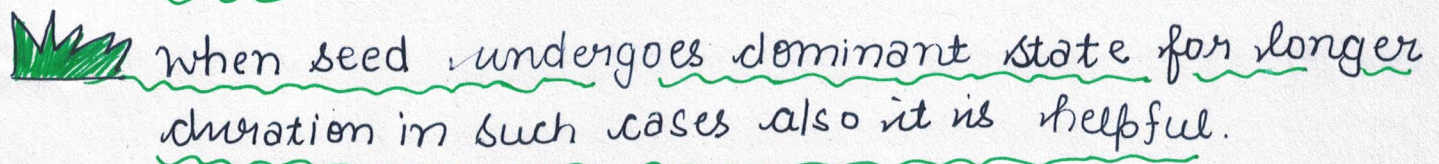 when seed undergoes dominant state for longer
duration in such cases also it is helpful.